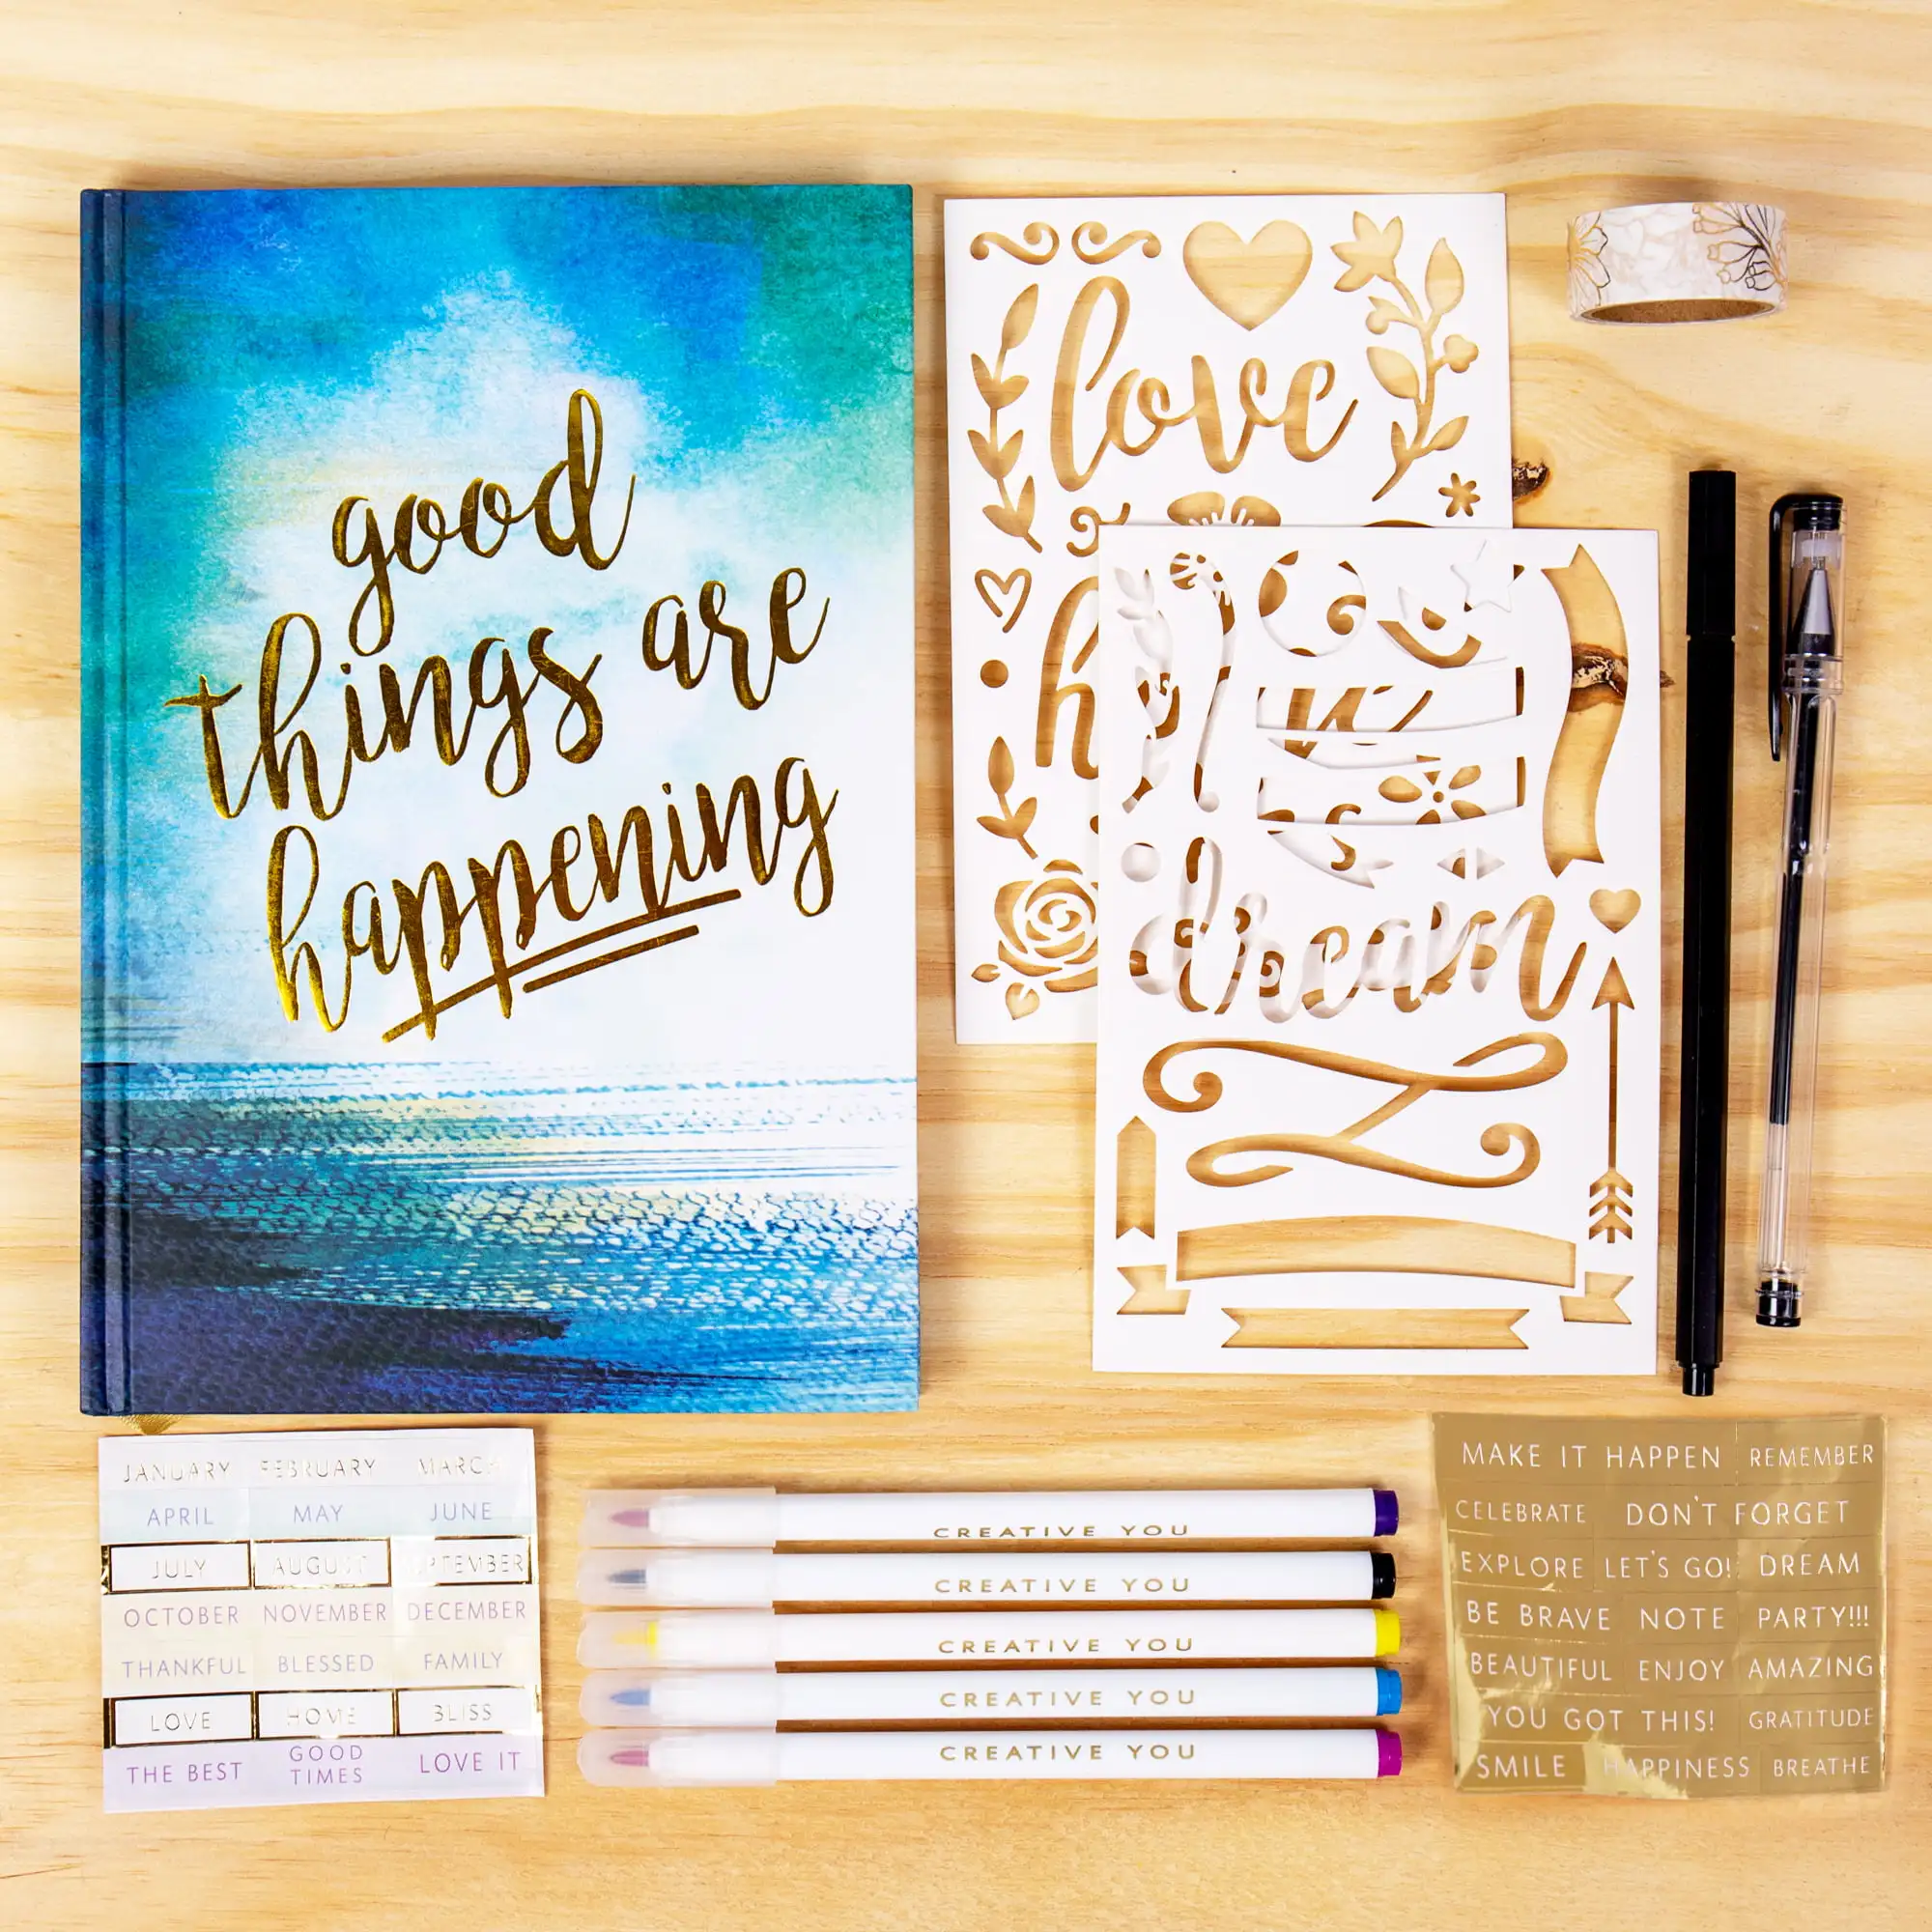 good
things are
happening
love
h
dream
JANUARY FEBRUARY MARCH
APRIL MAY JUNE
JULY AUGUST SEPTEMBER
OCTOBER NOVEMBER DECEMBER
THANKFUL BLESSED FAMILY
LOVE HOME BLISS
THE BEST GOOD TIMES LOVE IT
CREATIVE YOU
CREATIVE YOU
CREATIVE YOU
CREATIVE YOU
CREATIVE YOU
MAKE IT HAPPEN REMEMBER
CELEBRATE DON'T FORGET
EXPLORE LET'S GO! DREAM
BE BRAVE NOTE PARTY!!!
BEAUTIFUL ENJOY AMAZING
YOU GOT THIS! GRATITUDE
SMILE HAPPINESS BREATHE